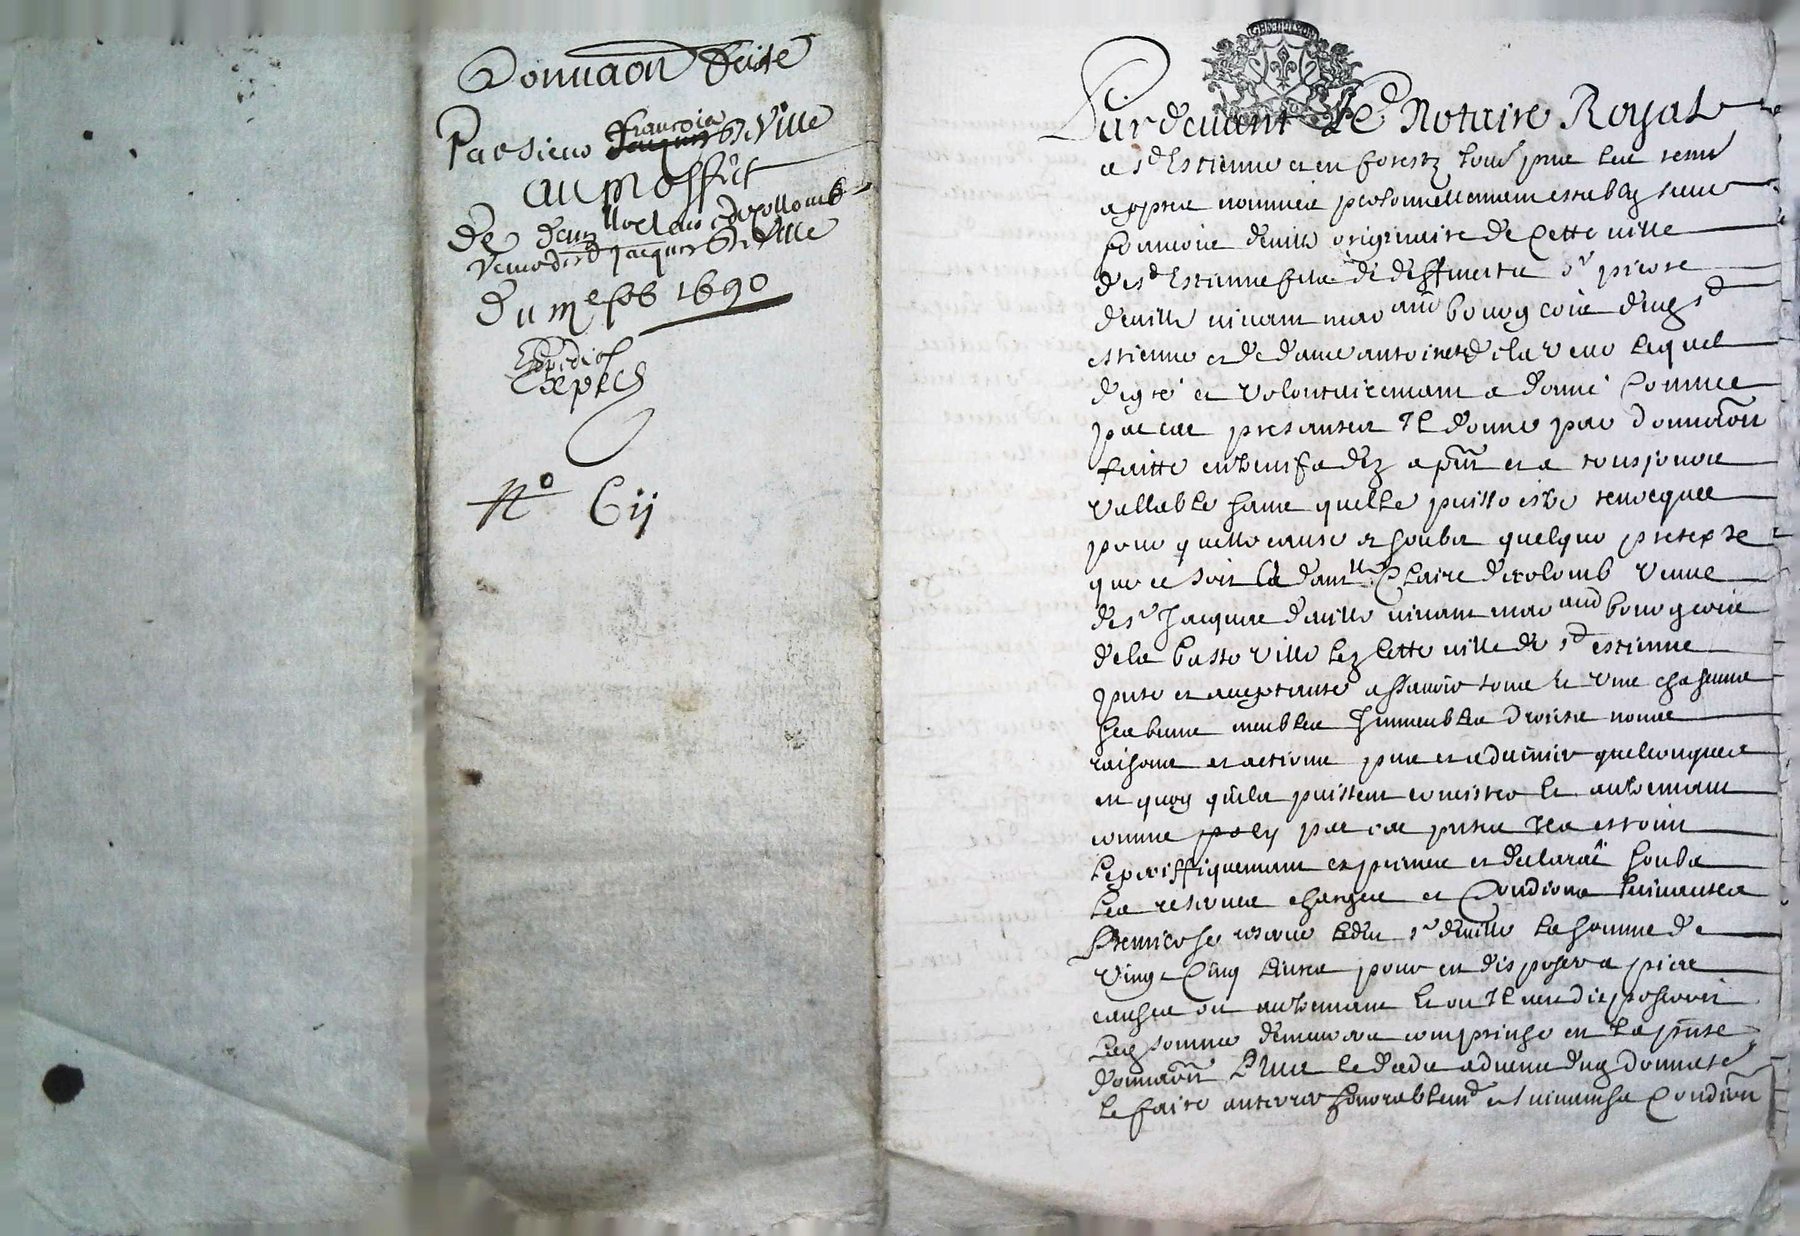 Donnaon Faite
Par sieur françois Deville
au proffit
De dam^lle Claire decolomb
veuve du sr Jacques Deville
Du m^e fb 1690
Expedié
Exped
N° Cij
Pardevant Le Notaire Royal
a st Estienne en forestz sous^né les tesm
appres nommés personnellemam estably sieur
francois deville originaire de cette ville
de st Estienne filz de deffuncts sr pierre
deville vivant mar^and bourgeois dudt st
estienne et de dame antoinette lequel
de gré et volontairemam a donné comme
par ces presantes Il donne par donnaon
faitte entre vifz a pnt et a tousjours
vallable sans quelle puisse estre revocquee
pour quelle cause et soubz quelque pretexte
que ce soit a dam^lle Claire decolomb veuve
de sr Jacques deville vivant mar^and bourgeois
de la basse ville lez cette ville de st estienne
pnte et acceptante assavoir tous et uns chascuns
ses biens meubles Immeubles droits noms
raisons et actions pns et advenir quelconques
en quoy quilz puissent consister et autremam
comme par ces pntes Ilz estoint
speciffiquemam exprimés et declarés soubz
les reserves charges et Condions suivantes
Premier se reserve ledit sr deville la somme de
vingt Cinq livres pour en disposer a pies
causes ou autremam et ou Il nen disposeroit
lad somme demeurera comprinse en la pnte
donnaon Plus le deces advenu dud donnateur
le faire enterrer honorablemt et suivam sa Condion